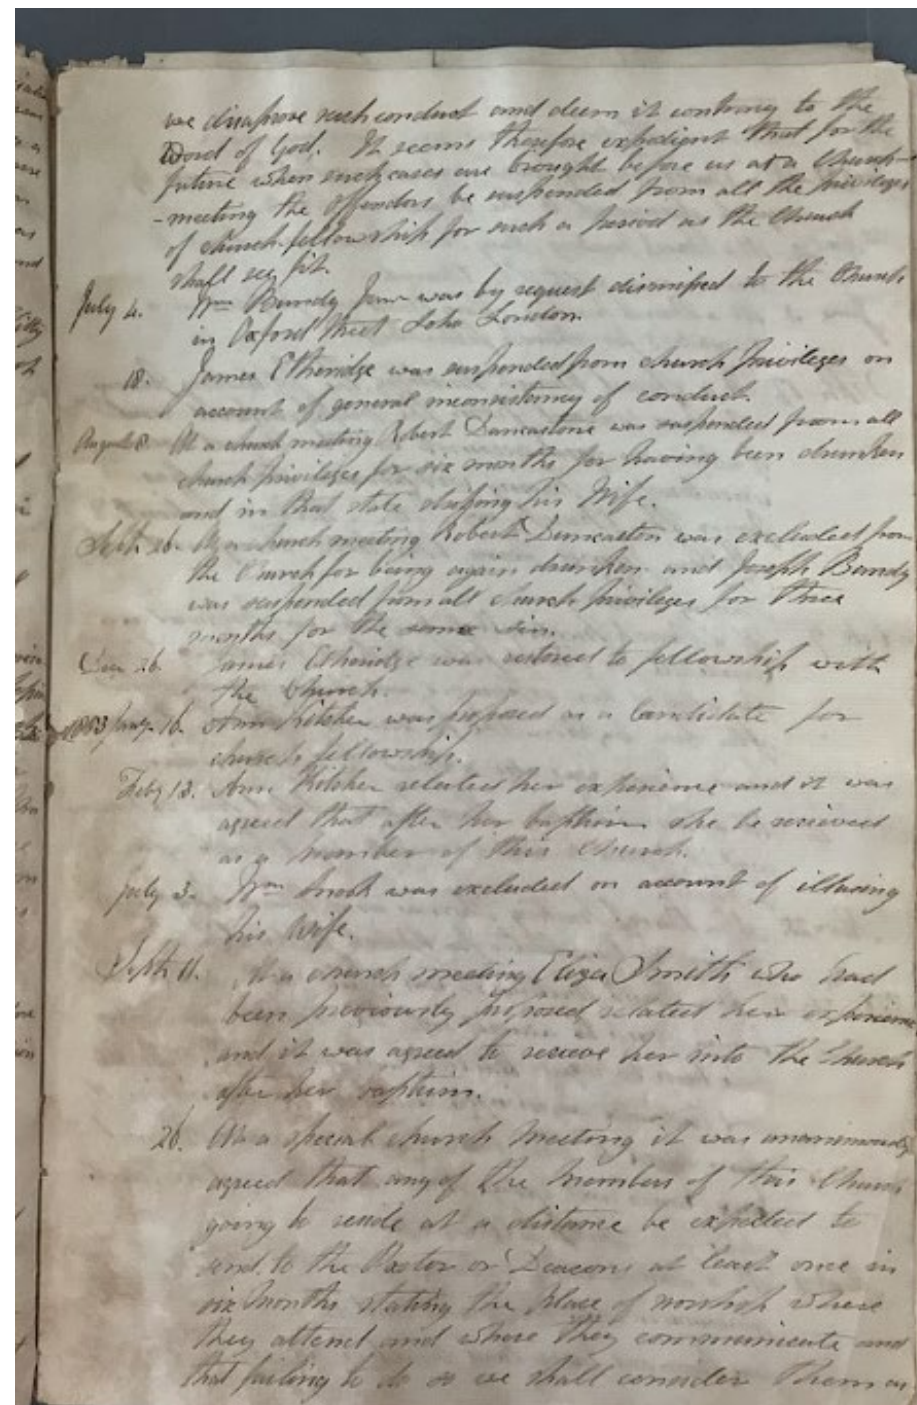 we disaprove such conduct and deem it contrary to the
Word of God. It seems therefore expedient that for the
future when such cases are brought before us at a Church-
-meeting the offenders be suspended from all the privileges
of church fellowship for such a period as the Church
shall see fit.
July 4. Wm Bundy Junr was by request dismissed to the Church
in Oxford Street Soho London.
18. James Etheridge was suspended from church privileges on
account of general inconsistency of conduct.
August 8. At a church meeting Robert Duncastone was suspended from all
church privileges for six months for having been drunken
and in that state striking his Wife.
Septr. 26. At a church meeting Robert Duncaston was excluded from
the Church for being again drunken and Joseph Bundy
was suspended from all church privileges for three
months for the same sin.
Dec 26. James Etheridge was restored to fellowship with
the Church.
1853 Jany. 16. Ann Kilsher was proposed as a Candidate for
church fellowship.
Feby 13. Ann Kilsher related her experience and it was
agreed that after her baptism she be recieved
as a member of this Church.
July 3. Wm was excluded on account of illusing
his Wife.
Septr. 11. At a church meeting Eliza Smith who had
been previously proposed related her experience
and it was agreed to recieve her into the Church
after her baptism.
26. At a special church meeting it was unanimously
agreed that any of the members of this Church
going to reside at a distance be expected to
send to the Pastor or Deacons at least once in
six months stating the place of worship where
they attend and where they communicate and
that failing to do so we shall consider them as